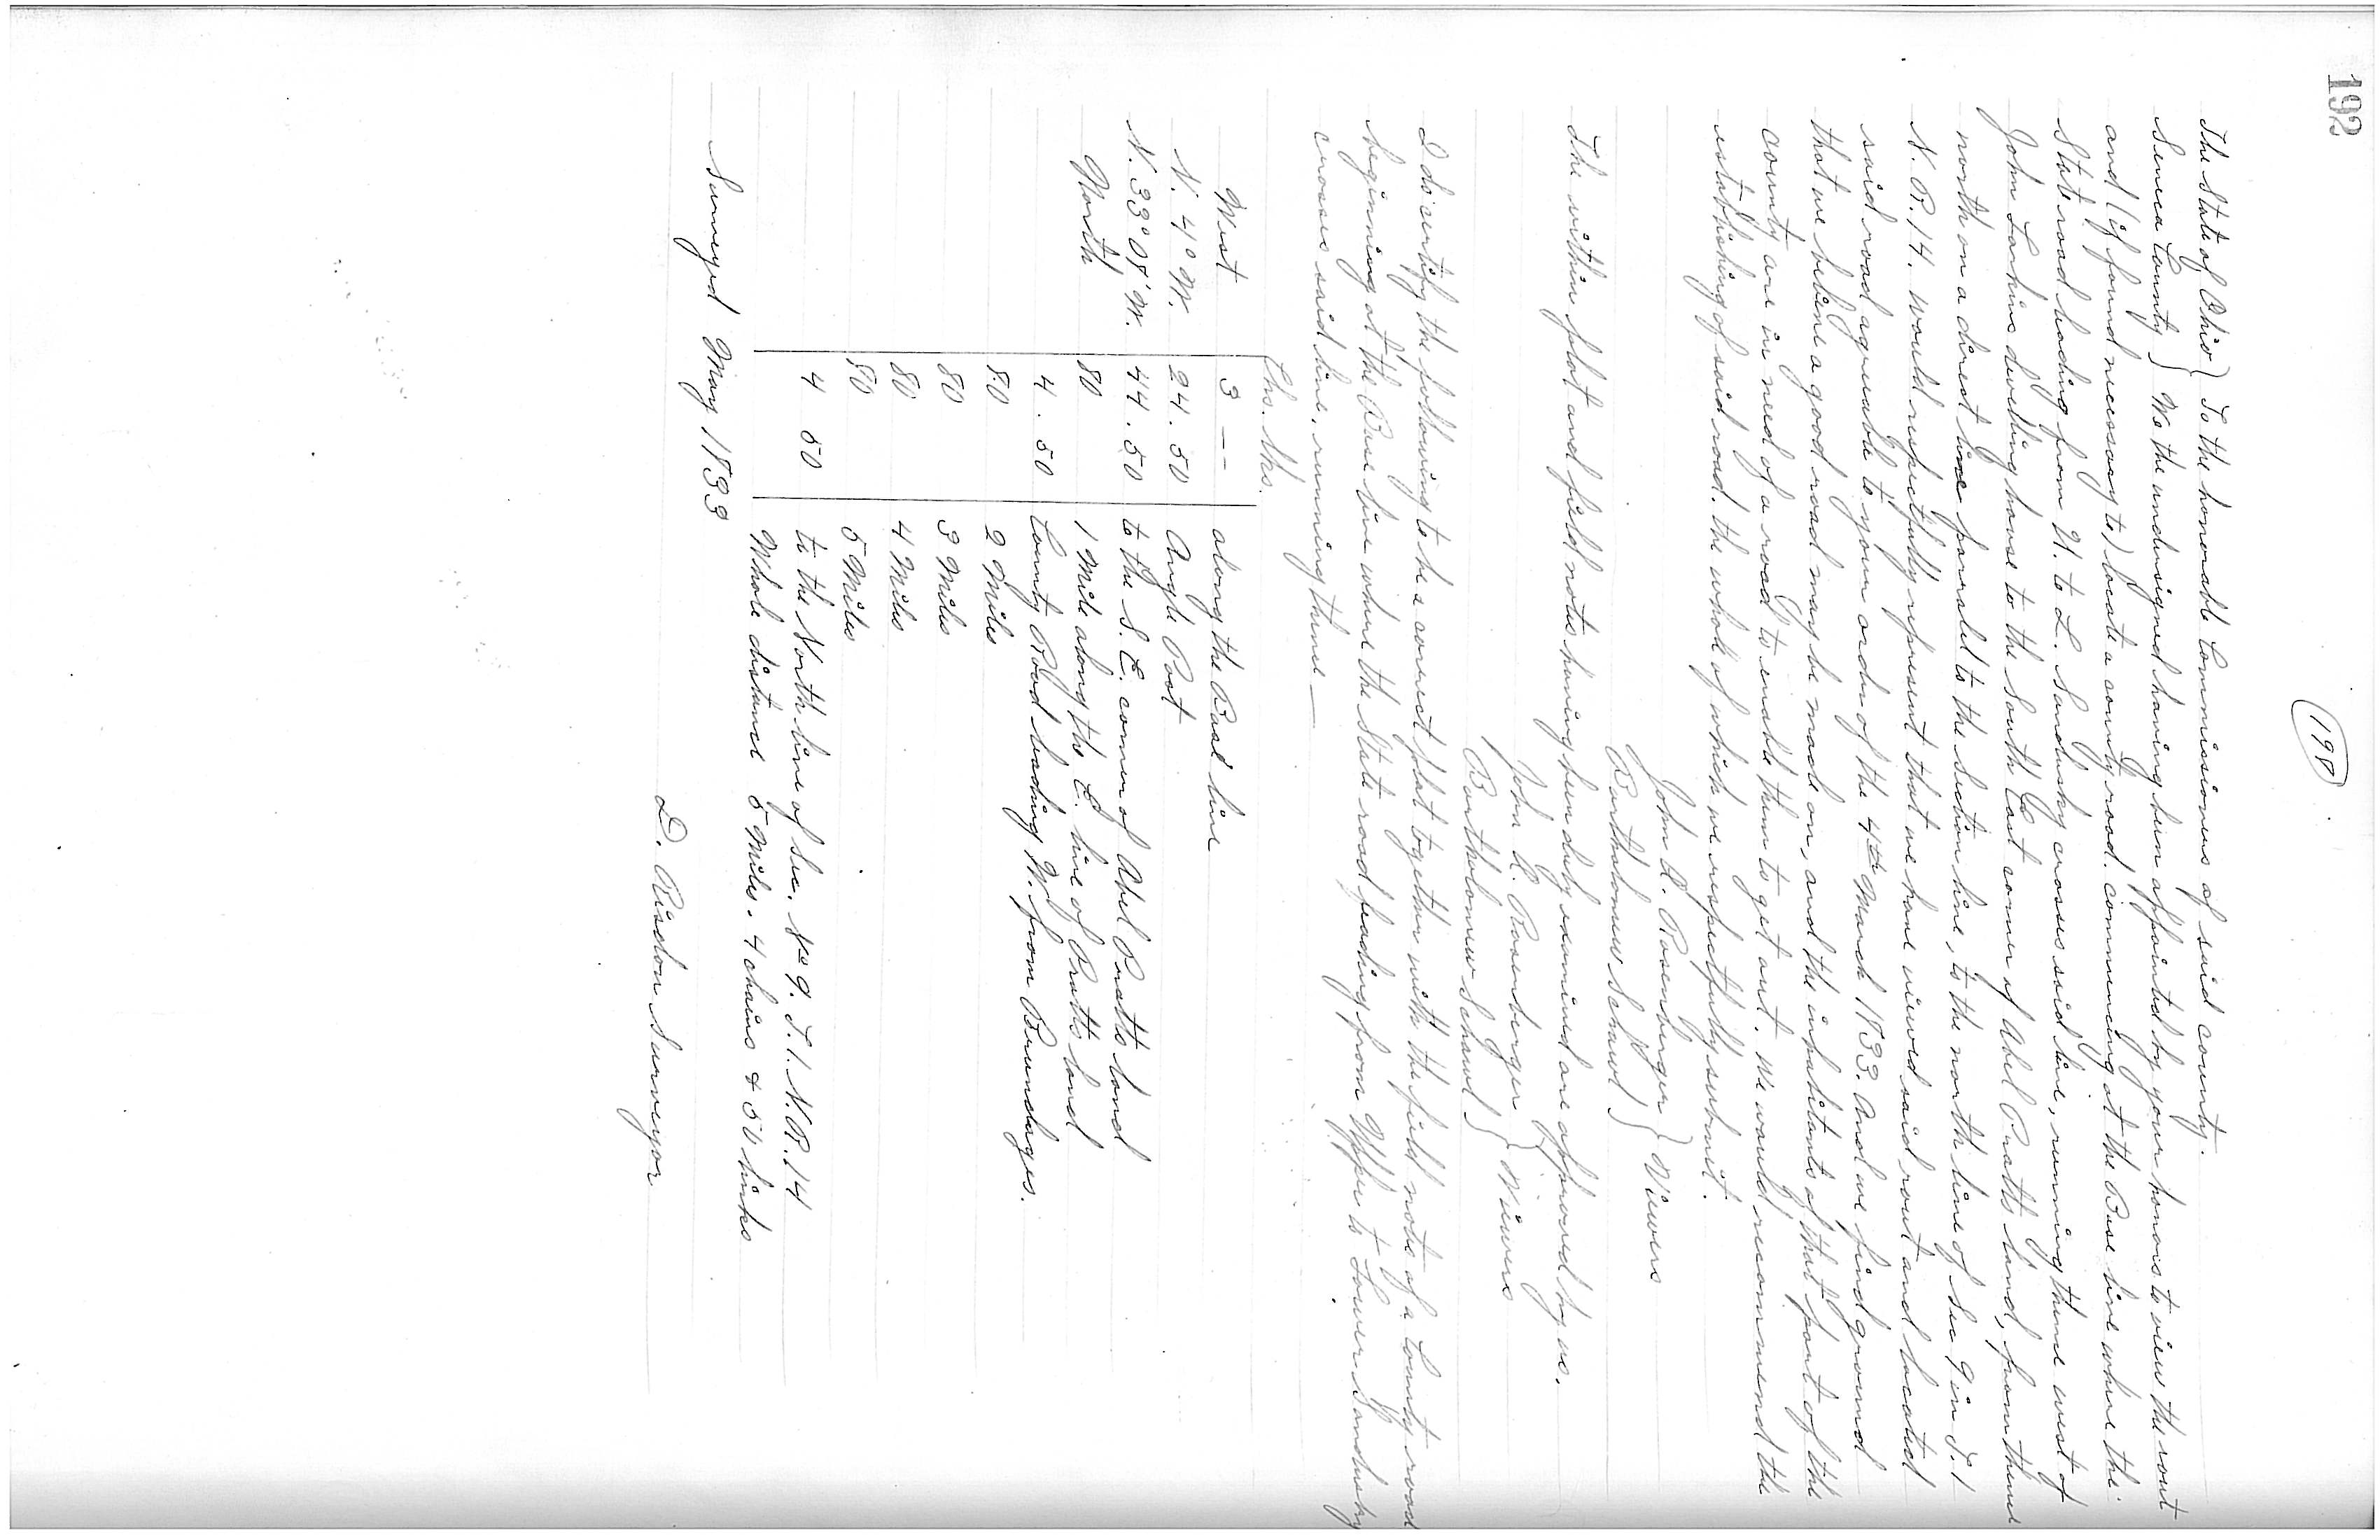 192
198
The State of Ohio } To the honorable Commissioners of said county.
Seneca County } We the undersigned having been appointed by your honors to view the rout
and (if found necessary to) locate a county road, commencing at the Base line where the
State road leading from U. to L. Sandusky crosses said line, running thence west of
John Larkins dwelling house to the South East corner of Abel Pratts land, from thence
north on a direct line parralel to the section line, to the north line of Sec 9 in T. 1
N. R. 14. would respectfully represent that we have viewed said rout and located
said road agreeable to your order of the 4th March 1833. And we find ground
that we believe a good road may be made on, and the inhabitants of that part of the
county are in need of a road to enable them to get out. We would recommend the
establishing of said road. the whole of which we respectfully submit.
John R. Rosenberger } Viewers
Bartholomew Schawl }
The within plat and field notes having been duly examined are approved by us.
John R. Rosenberger } Viewers
Bartholomew Schawl }
I do certify the following to be a correct plat together with the field notes of a County road
beginning at the Base line where the State road leading from Upper to Lower Sandusky
crosses said line, running thence —
Chs. lks.
West 3 -- along the Base line
N. 4° W. 24. 50 Angle Post
N. 33° 08' W. 44. 50 to the S. E. corner of Abel Pratts land
North 80 1 Mile along the E. line of Pratts land
4. 50 County Road leading W. from Brundages.
80 2 Miles
80 3 Miles
80 4 Miles
80 5 Miles
4 50 to the North line of Sec. No 9. T. 1. N. R. 14
Whole distance 5 Miles. 4 chains & 50 links
Surveyed May 1833
D. Risdon Surveyor